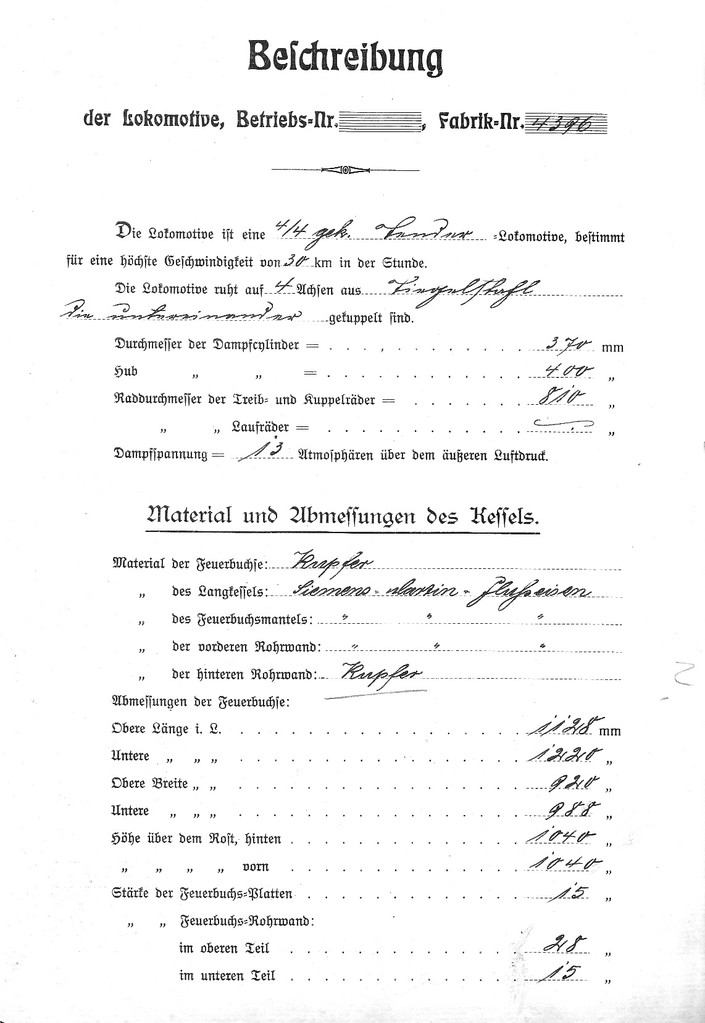 Beschreibung
der Lokomotive, Betriebs-Nr. , Fabrik-Nr. 4396
Die Lokomotive ist eine 4/4 gek. Tender-Lokomotive, bestimmt
für eine höchste Geschwindigkeit von 30 km in der Stunde.
Die Lokomotive ruht auf 4 Achsen aus Tiegelstahl
die untereinander gekuppelt sind.
Durchmesser der Dampfcylinder = 370 mm
Hub „ „ = 400 „
Raddurchmesser der Treib- und Kuppelräder = 810 „
„ „ Laufräder = . „
Dampfspannung = 13 Atmosphären über dem äußeren Luftdruck.
Material und Abmessungen des Kessels.
Material der Feuerbuchse: Kupfer
„ des Langkessels: Siemens-Martin-Flußeisen
„ des Feuerbuchsmantels: „ „ „
„ der vorderen Rohrwand: „ „ „
„ der hinteren Rohrwand: Kupfer
Abmessungen der Feuerbuchse:
Obere Länge i. L. 1128 mm
Untere „ „ „ 1220 „
Obere Breite „ „ 920 „
Untere „ „ „ 988 „
Höhe über dem Rost, hinten 1040 „
„ „ „ „ vorn 1040 „
Stärke der Feuerbuchs-Platten 15 „
„ „ Feuerbuchs-Rohrwand:
im oberen Teil 28 „
im unteren Teil 15 „